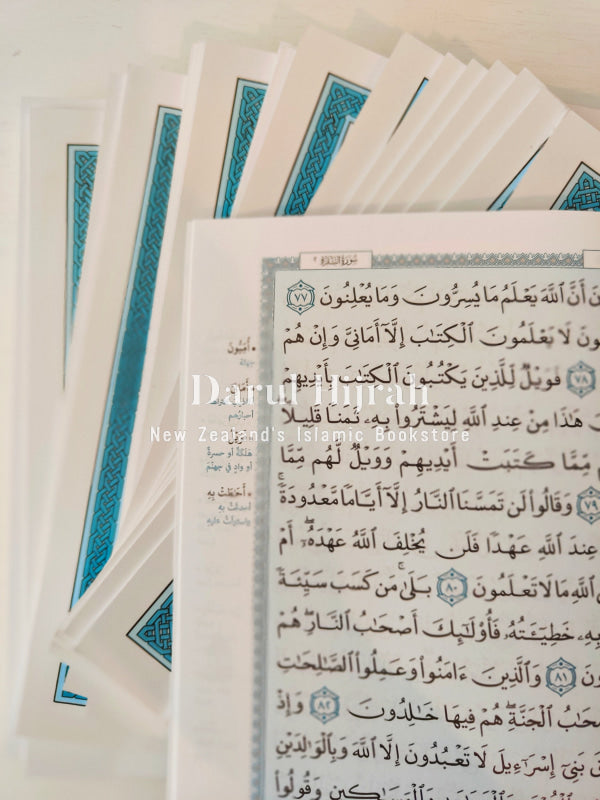 سُورَةُ البَقَرَةِ ٢
أَنَّ ٱللَّهَ يَعْلَمُ مَا يُسِرُّونَ وَمَا يُعْلِنُونَ ٧٧
لَا يَعْلَمُونَ ٱلْكِتَٰبَ إِلَّآ أَمَانِىَّ وَإِنْ هُمْ
٧٨ فَوَيْلٌ لِّلَّذِينَ يَكْتُبُونَ ٱلْكِتَٰبَ بِأَيْدِيهِمْ
هَٰذَا مِنْ عِندِ ٱللَّهِ لِيَشْتَرُوا۟ بِهِۦ ثَمَنًا قَلِيلًا
مِّمَّا كَتَبَتْ أَيْدِيهِمْ وَوَيْلٌ لَّهُم مِّمَّا
٧٩ وَقَالُوا۟ لَن تَمَسَّنَا ٱلنَّارُ إِلَّآ أَيَّامًا مَّعْدُودَةً ۚ
عِندَ ٱللَّهِ عَهْدًا فَلَن يُخْلِفَ ٱللَّهُ عَهْدَهُۥٓ ۖ أَمْ
ٱللَّهِ مَا لَا تَعْلَمُونَ ٨٠ بَلَىٰ ۚ مَن كَسَبَ سَيِّئَةً
بِهِۦ خَطِيٓـَٔتُهُۥ فَأُو۟لَٰٓئِكَ أَصْحَٰبُ ٱلنَّارِ ۖ هُمْ
٨١ وَٱلَّذِينَ ءَامَنُوا۟ وَعَمِلُوا۟ ٱلصَّٰلِحَٰتِ
ٱلْجَنَّةِ ۖ هُمْ فِيهَا خَٰلِدُونَ ٨٢ وَإِذْ
بَنِىٓ إِسْرَٰٓءِيلَ لَا تَعْبُدُونَ إِلَّا ٱللَّهَ وَبِٱلْوَٰلِدَيْنِ
وَقُولُوا۟
• أُمِّيُّونَ
جهلة
هلكةٌ أو حسرةٌ
أو وادٍ في جهنم
• أَحَٰطَتْ بِهِ
أحدقت به
واستولت عليه
Darul Hijrah
New Zealand's Islamic Bookstore